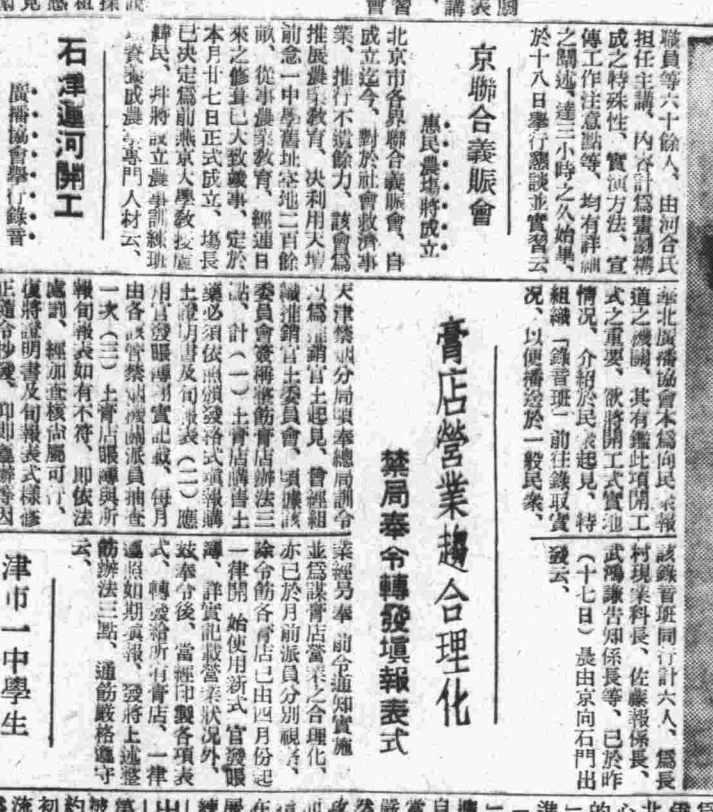 職員等六十餘人、由河合氏
担任主講、內容計爲畫劇構
成之特殊性、實演方法、宣
傳工作注意點等、均有詳細
之闡述、達三小時之久始畢、
於十八日舉行懇談並實習云
京聯合義賑會
惠民農場將成立
北京市各界聯合義賑會、自
成立迄今、對於社會救濟事
業、推行不遺餘力、該會爲
推展農業敎育、決利用天壇
前念一中學舊址空地二百餘
畝、從事農業敎育、經連日
來之修葺已大致竣事、定於
本月廿七日正式成立、場長
已決定爲前燕京大學敎授盧
緯民、幷將設立農事訓練班
資振成農事專門人材云、
石津運河開工
廣播協會舉行錄音
華北廣播協會本爲向民衆報
道之機關、其有鑑此項開工
式之重要、欲將開工式實地
情況、介紹於民衆起見、特
組織「錄音班」前往錄取實
况、以便播送於一般民衆、
該錄音班同行計六人、爲長
村現業科長、佐藤報係長、
武鴻謙吿知係長等、已於昨
(十七日)晨由京向石門出
發云、
膏店營業趨合理化
禁局奉令轉發塡報表式
天津禁煙分局頃奉總局訓令
以爲推銷官土起見、曾經組
織推銷官土委員會、頃據該
委員會簽稱整飭膏店辦法三
點、計(一)土膏店購書土
藥必須依照頒發格式塡報購
土證明書及旬報表(二)應
用官發賬簿翔實記載、每月
由各該管禁煙機關派員抽查
一次(三)土膏店賬簿與所
報旬報表如有不符、即依法
處罰、經加查核尙屬可行、
復將證明書及旬報表式樣修
正隨令抄發、仰即遵辦等因
業經另奉 前令通知實施
並爲謀膏店營業之合理化、
亦已於月前派員分別視察、
除令飭各膏店已由四月份起
一律開 始使用新式 官發賬
簿、詳實記載營業狀況外、
茲奉令後、當經印製各項表
式、轉發給所有膏店、一律
遵照如期塡報、發將上述整
飭辦法三點、通飭嚴格遵守
云、
津市一中學生